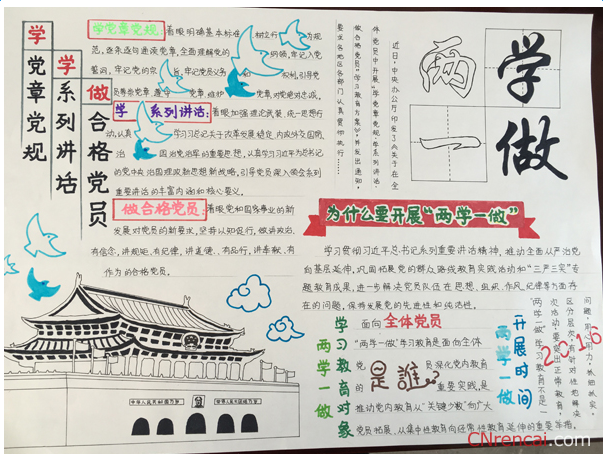 学党章党规
学系列讲话
做合格党员
学党章党规:着眼明确基本标准、树立行为规
范,逐条逐句通读党章,全面理解党的纲领,牢记入党
誓词,牢记党的宗旨,牢记党员义务和权利,引导党
员尊崇党章、遵守党章、维护党章、
学系列讲话:着眼加强理论武装、统一思想行
动,认真学习习近平总书记关于改革发展稳定、内政外交国防、
治党治国治军的重要思想,认真学习以习近平为总书记
的党中央治国理政新思想新战略,引导党员深入领会系列
重要讲话的丰富内涵和核心要义。
做合格党员:着眼党和国家事业的新
发展对党员的新要求,坚持以知促行,做讲政治、
有信念,讲规矩、有纪律,讲道德、有品行,讲奉献、有
作为的合格党员。
近日,中央办公厅印发了《关于在全
体党员中开展“学党章党规、学系列讲话,
做合格党员”学习教育方案》,并发出通知,
要求各地区各部门认真贯彻执行……
两学
一做
为什么要开展“两学一做”
学习贯彻习近平总书记系列重要讲话精神,推动全面从严治党
向基层延伸,巩固拓展党的群众路线教育实践活动和“三严三实”专
题教育成果,进一步解决党员队伍在思想、组织、作风、纪律等方面存
在的问题,保持发展党的先进性和纯洁性。
两学一做
学习教育对象
面向全体党员
“两学一做”学习教育是面向全体
党员深化党内教育
的重要实践,是
是谁
推动党内教育从“关键少数”向广大
党员拓展、从集中性教育向经常性教育延伸的重要举措。
两学一做
开展时间
2016
“两学一做”学习教育不是一
次活动,要突出正常教育,
区分层次,有针对性地解决
问题,
中华人民共和国万岁
世界人民大团结万岁
CNrencai.com